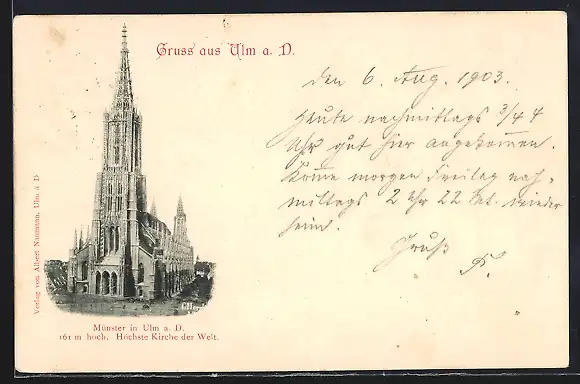 Gruss aus Ulm a. D.
den 6. Aug. 1903.
Heute nachmittags 3/4 4
Uhr gut hier angekommen.
Komme morgen Freitag nach-
mittags 2 Uhr 22 Mt. wieder
heim.
Gruß
F.
Verlag von Albert Naumann, Ulm a D
Münster in Ulm a. D.
161 m hoch. Höchste Kirche der Welt.